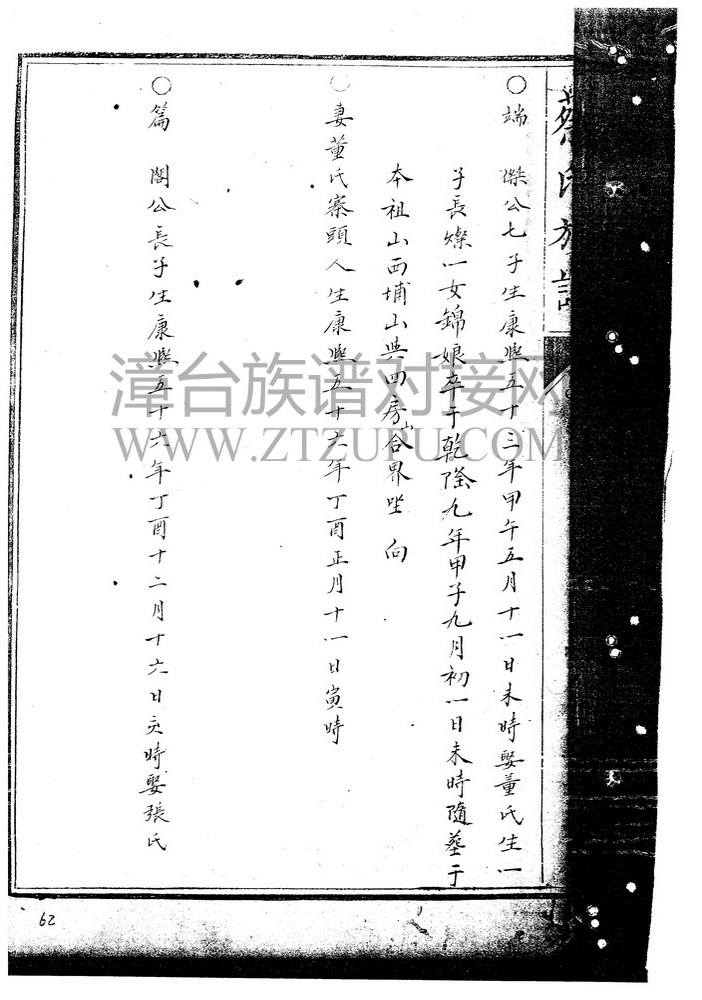 蔡氏族譜
〇端 傑公七子生康熙五十三年甲午五月十一日未時娶董氏生一
子長燦一女錦娘卒于乾隆九年甲子九月初一日未時隨葬于
本祖山西埔山與四房山合界坐 向
〇妻董氏寨頭人生康熙五十六年丁酉正月十一日寅時
〇篇 閣公長子生康熙五十六年丁酉十二月十六日亥時娶張氏
漳台族谱对接网
WWW.ZTZUPU.COM
62